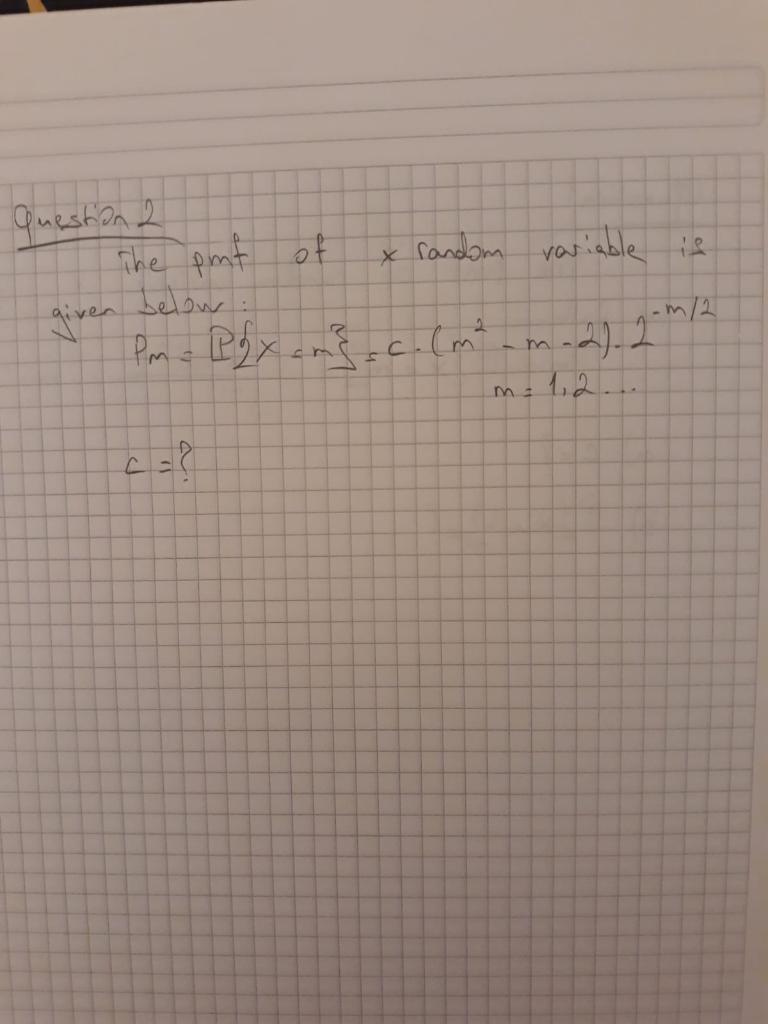 Question 2
The pmf of x random variable is
given below:
Pm = P{x = m} = c . (m² - m - 2) . 2^-m/2
m = 1,2 ...
c = ?